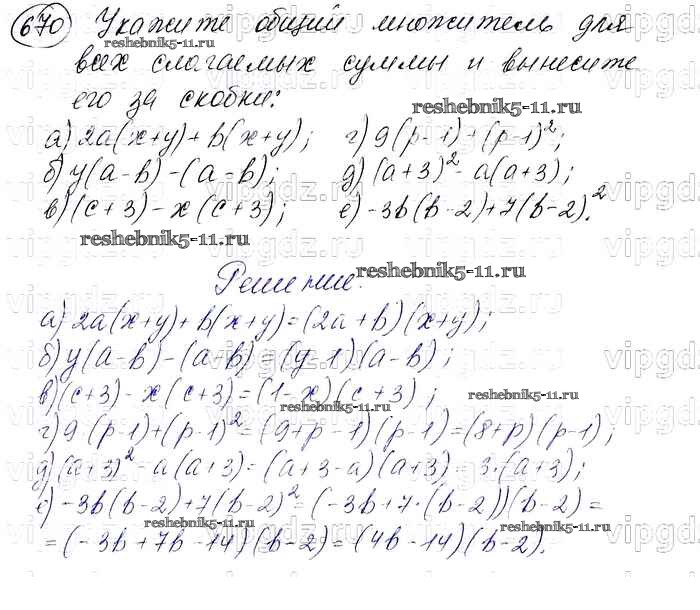 670 Укажите общий множитель для
всех слагаемых суммы и вынесите
его за скобки:
reshebnik5-11.ru
reshebnik5-11.ru
а) 2a(x+y)+b(x+y); г) 9(p-1)+(p-1)²;
б) y(a-b)-(a-b); д) (a+3)²-a(a+3);
в) (c+3)-x(c+3); е) -3b(b-2)+7(b-2)².
reshebnik5-11.ru
Решение:
reshebnik5-11.ru
а) 2a(x+y)+b(x+y)=(2a+b)(x+y);
б) y(a-b)-(a-b)=(y-1)(a-b);
в) (c+3)-x(c+3)=(1-x)(c+3);
reshebnik5-11.ru
reshebnik5-11.ru
г) 9(p-1)+(p-1)²=(9+p-1)(p-1)=(8+p)(p-1);
д) (a+3)²-a(a+3)=(a+3-a)(a+3)=3·(a+3);
е) -3b(b-2)+7(b-2)²=(-3b+7·(b-2))(b-2)=
reshebnik5-11.ru
reshebnik5-11.ru
=(-3b+7b-14)(b-2)=(4b-14)(b-2).
vipgdz.ru